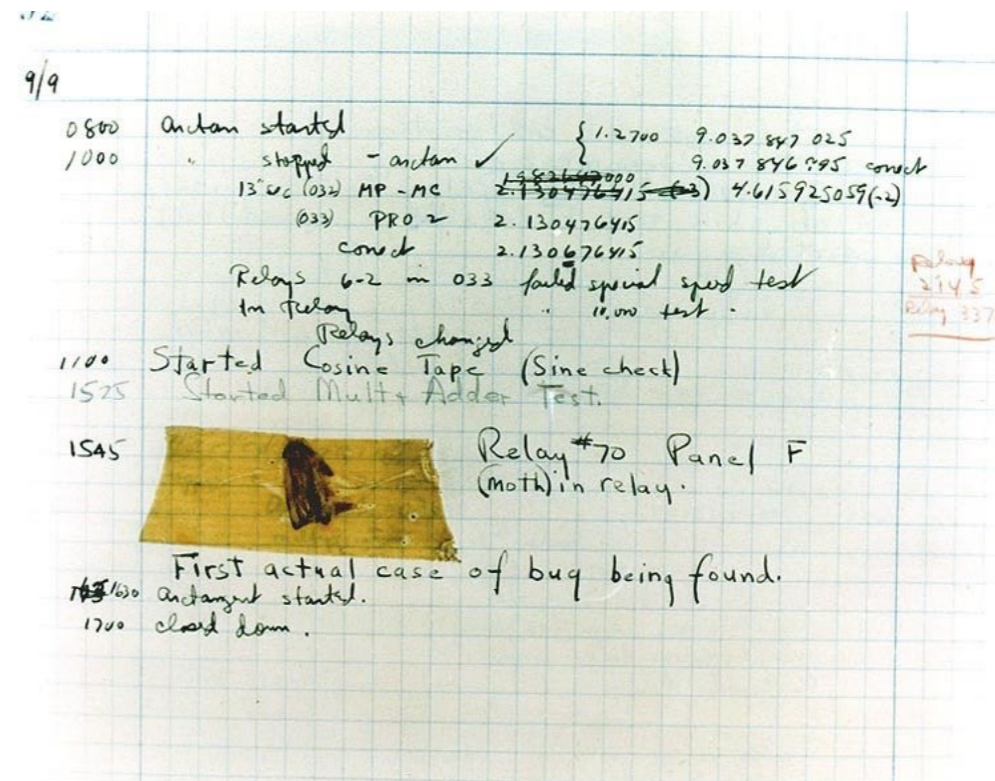 9/9
0800 antan started { 1.2700 9.037 847 025
1000 " stopped - antan ✓ 9.037 846 995 conect
13" uc (032) MP - MC 2.130476415 (-3) 4.615925059(-2)
(033) PRO 2 2.130476415
conect 2.130676415
Relays 6-2 in 033 failed special speed test
In Relay " 10,000 test .
Relay
2145
Relay 337
Relays changed
1100 Started Cosine Tape (Sine check)
1525 Started Mult+ Adder Test.
1545 Relay #70 Panel F
(moth) in relay.
First actual case of bug being found.
1630 antangent started.
1700 closed down.